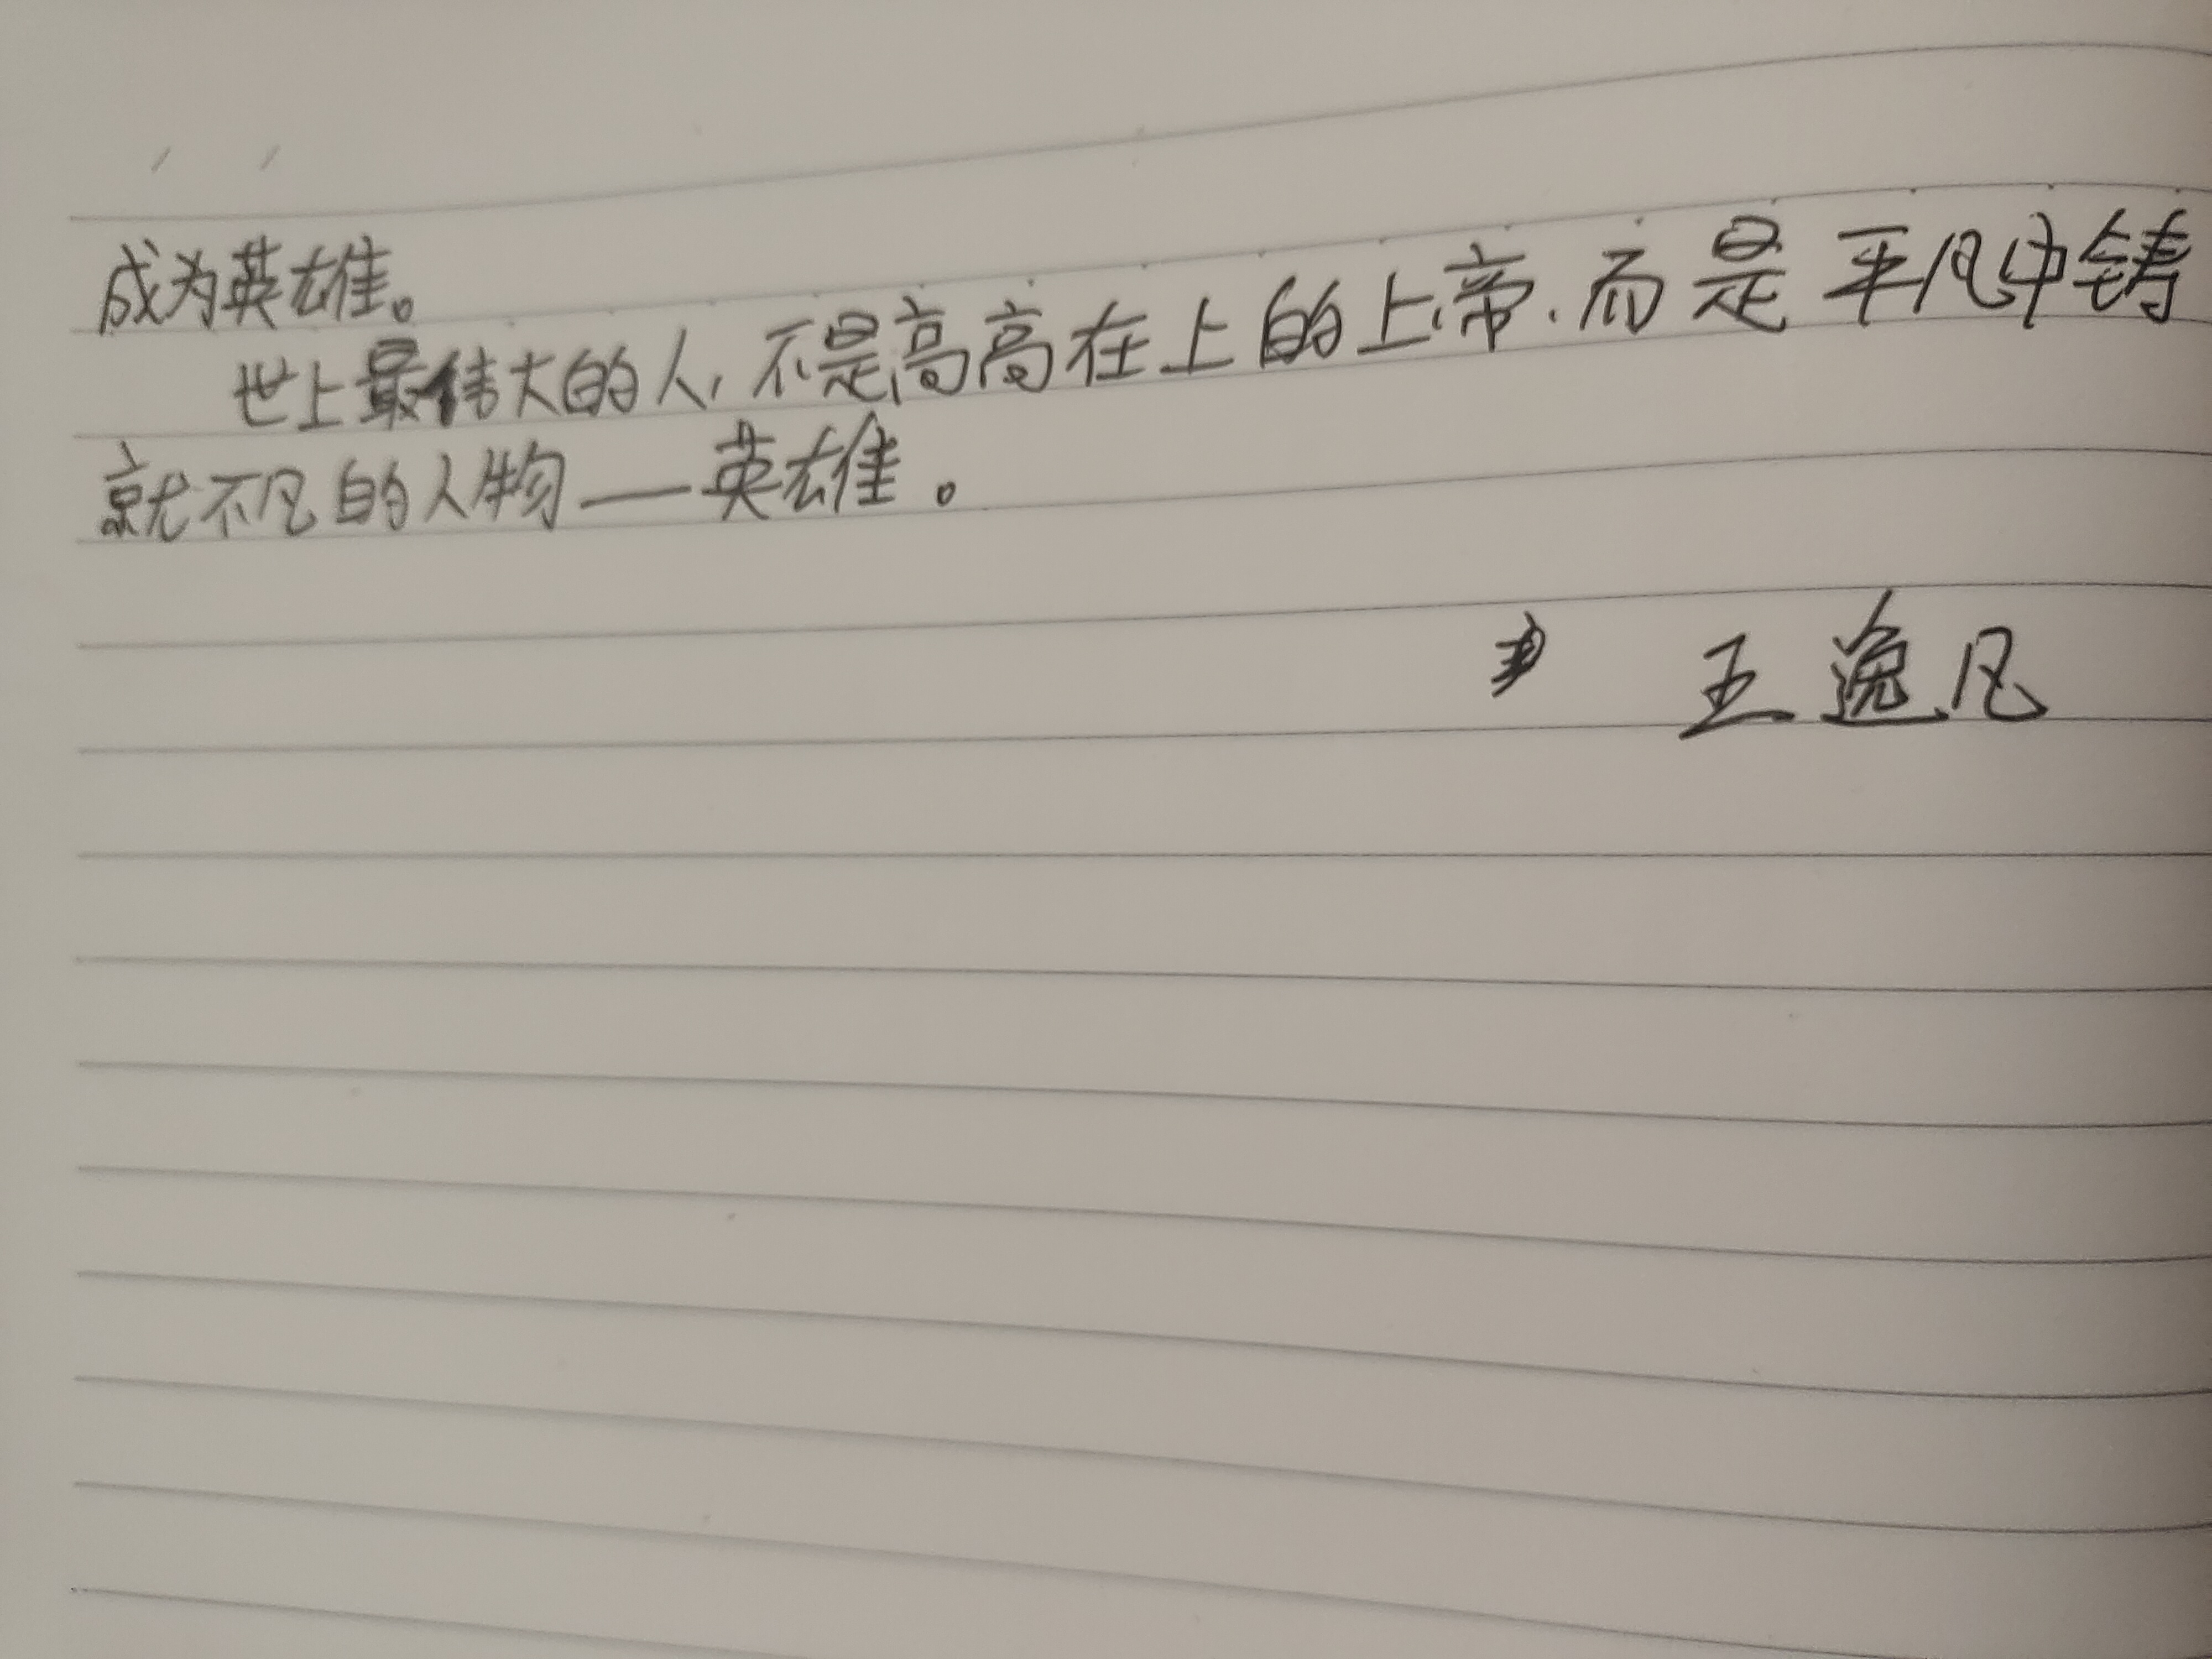 成为英雄。
世上最伟大的人,不是高高在上的上帝,而是平凡中铸
就不凡的人物—英雄。
王逸凡